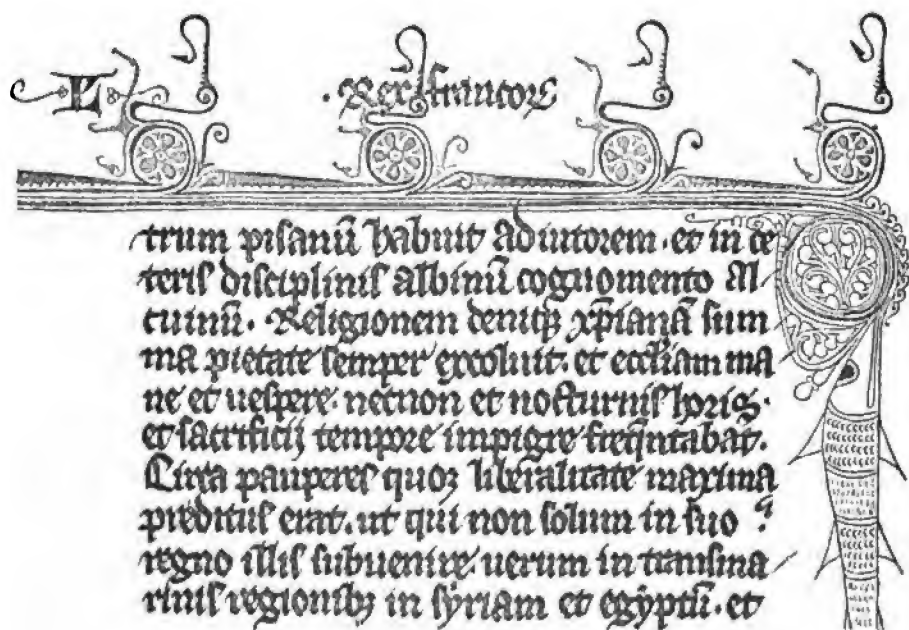 L
· Rex francoꝝ
trum pisanū habuit adiutorem · et in ce
teris disciplinis albinū cognomento al
cuinū · Religionem deniqꝫ xp̄ianā sum
ma pietate semper excoluit · et eccl̄iam ma
ne et uespere · necnon et nocturnis horis ·
et sacrificij tempore impigre freq̄ntabat ·
Circa pauperes quoꝫ liberalitate maxima
preditus erat · ut qui non solum in suo
regno illis subuenire · uerum in transma
rinis regionibꝫ in syriam et egyptū · et